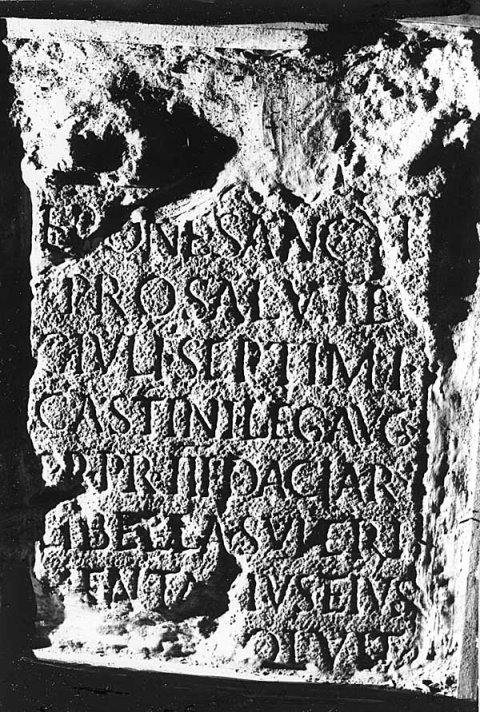 EPONE SANCT
PRO SALVTE
C IVLI SEPTIMI
CASTINI LEG AVG
PR PR III DACIAR
ENTA IVS EIVS
OLVIT